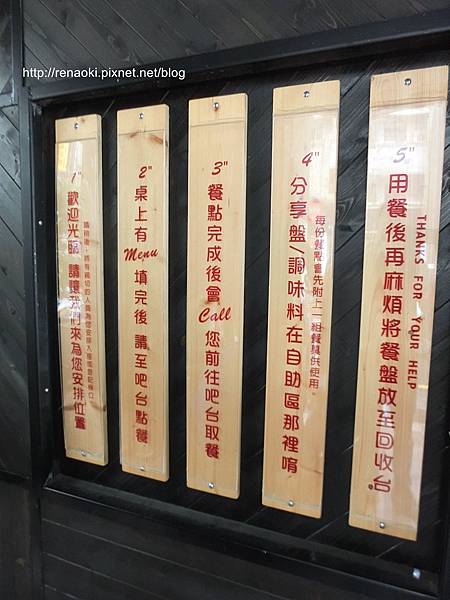 http://renaoki.pixnet.net/blog
1"
歡迎光臨 請讓我們來為您安排位置
2"
桌上有 Menu 填完後 請至吧台點餐
3"
餐點完成後會 Call 您前往吧台取餐
4"
分享盤/調味料在自助區那裡唷
每份餐點會先附上一組餐具供使用。
5"
用餐後再麻煩將餐盤放至回收台。
THANKS FOR YOUR HELP